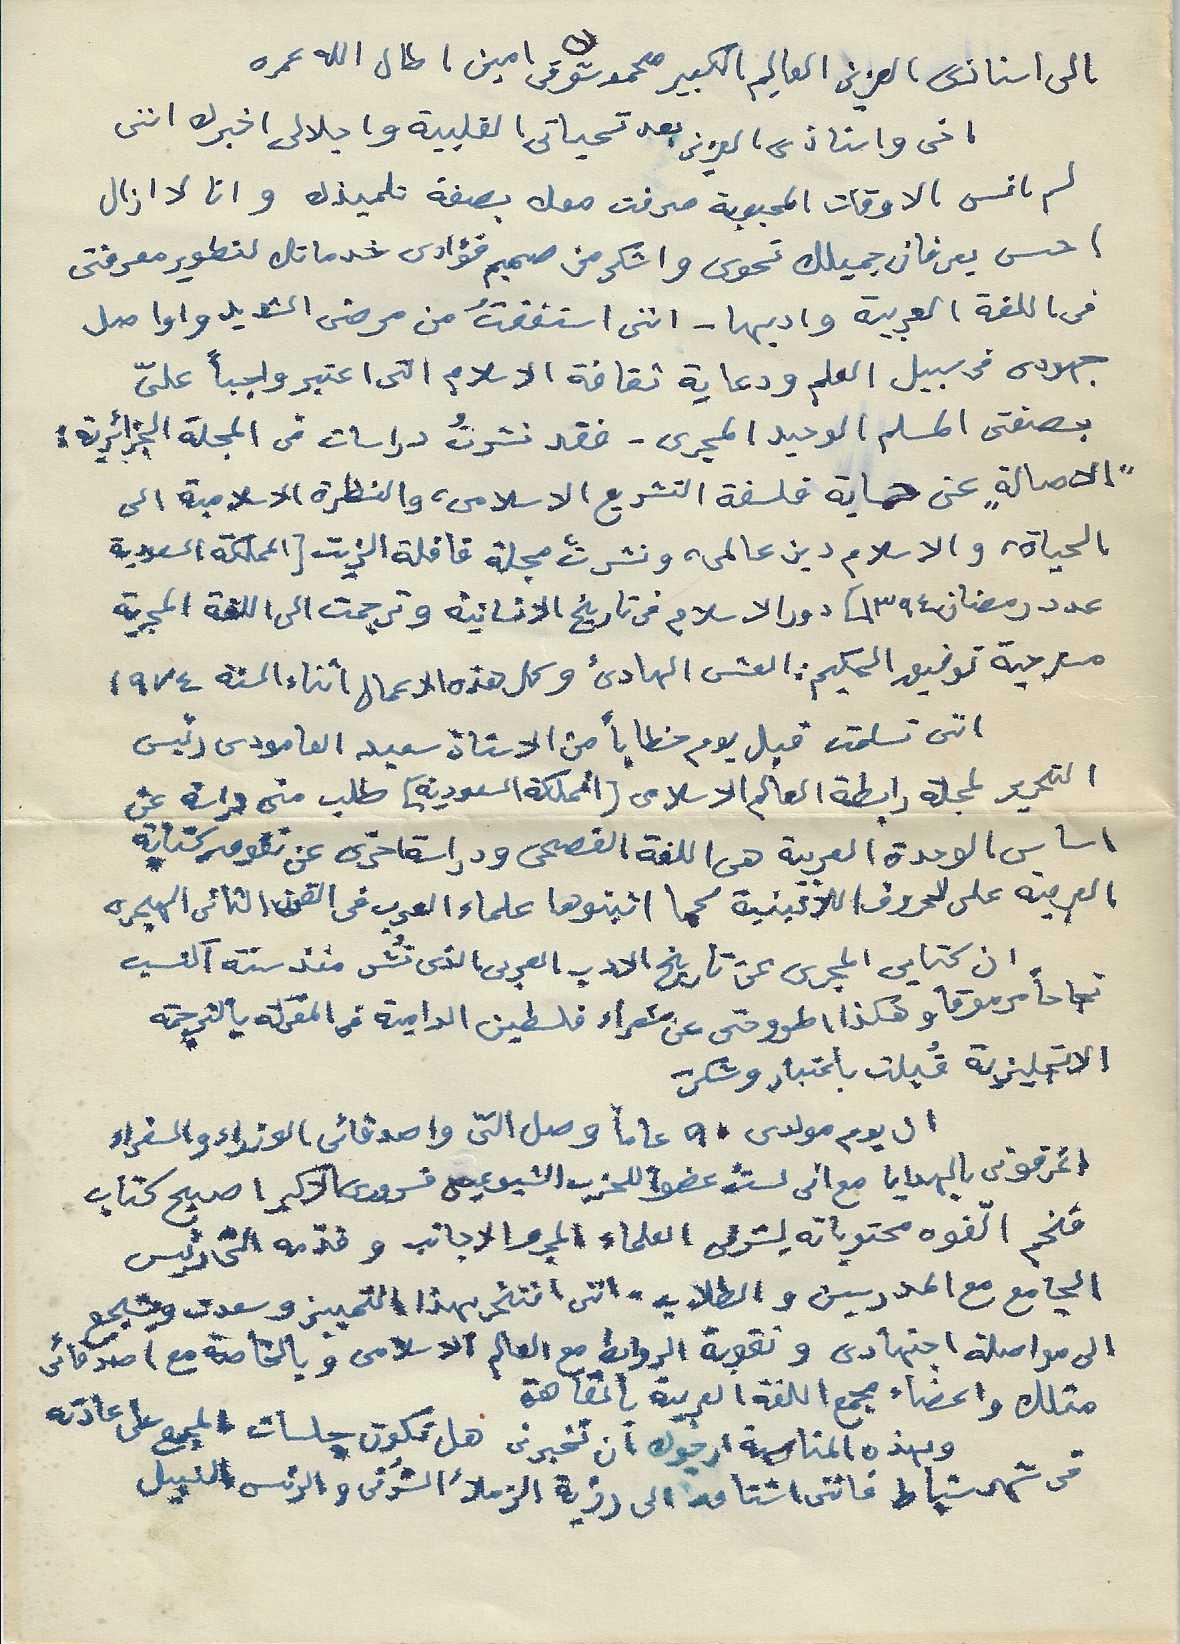 الى استاذى العزيز العالم الكبير محمد شوقى امين اطال الله عمره
(١)
اخى واستاذى العزيز بعد تحياتى القلبية واجلالى اخبرك اننى
لم انس الاوقات المحبوبة صرفت معك بصفة تلميذك وانا لا ازال
احس بعرفان جميلك نحوى واشكر من صميم فؤادى خدماتك لتطوير معرفتى
فى اللغة العربية وادبها - اننى استفقتُ من مرضى الشديد واواصل
جهودى فى سبيل العلم ودعاية ثقافة الاسلام التى اعتبر واجباً علىّ
بصفتى المسلم الوحيد المجرى - فقد نشرتُ دراسات فى المجلة الجزائرية:
"الاصالة" عن فلسفة التشريع الاسلامى، والنظرة الاسلامية الى
الحياة، والاسلام دين عالمى، ونشرت مجلة قافلة الزيت [المملكة السعودية
عدد رمضان ١٣٩٤] دور الاسلام فى تاريخ الانسانية وترجمت الى اللغة المجرية
مسرحية توفيق الحكيم: العش الهادئ وكل هذه الاعمال أثناء السنة ١٩٧٤
اننى تسلمت قبل يوم خطاباً من الاستاذ سعيد العامودى رئيس
التحرير لمجلة رابطة العالم الاسلامى [المملكة السعودية] طلب منى دراسة عن
اساس الوحدة العربية هى اللغة الفصحى ودراسة اخرى عن تفوق كتابة
العربية على الحروف اللاتينية كما اثبتوها علماء العرب فى القرن الثانى الهجرى
ان كتابى المجرى عن تاريخ الادب العربى الذى نُشر منذ سنة اكتسب
نجاحاً مرموقاً وهكذا اطروحتى عن شعراء فلسطين الدامية فى المعركة بالترجمة
الانجليزية قُبلت باعتبار وشكر
ان يوم مولدى ٩٠ عاماً وصل الىّ واصدقائى الوزراء والسفراء
اغرقونى بالهدايا مع انى لستُ عضواً للحزب الشيوعى الاكبر اصبح كتاب
فخم الّفوه محتوياته لشرفى العلماء المجر والاجانب وقدّمه
الجامع مع المدرسين والطلاب - اننى افتخر بهذا التمييز وسعدت ويشجع
الى مواصلة اجتهادى وتقوية الروابط مع العالم الاسلامى وبالخاصة مع اصدقائى
مثلك واعضاء مجمع اللغة العربية بالقاهرة
وبهذه المناسبة ارجوك أن تخبرنى هل تكون جلسات المجمع على عادته
فى شهر شباط فاننى اشتاق الى رؤية الزملاء الشرفى والرئيس النبيل